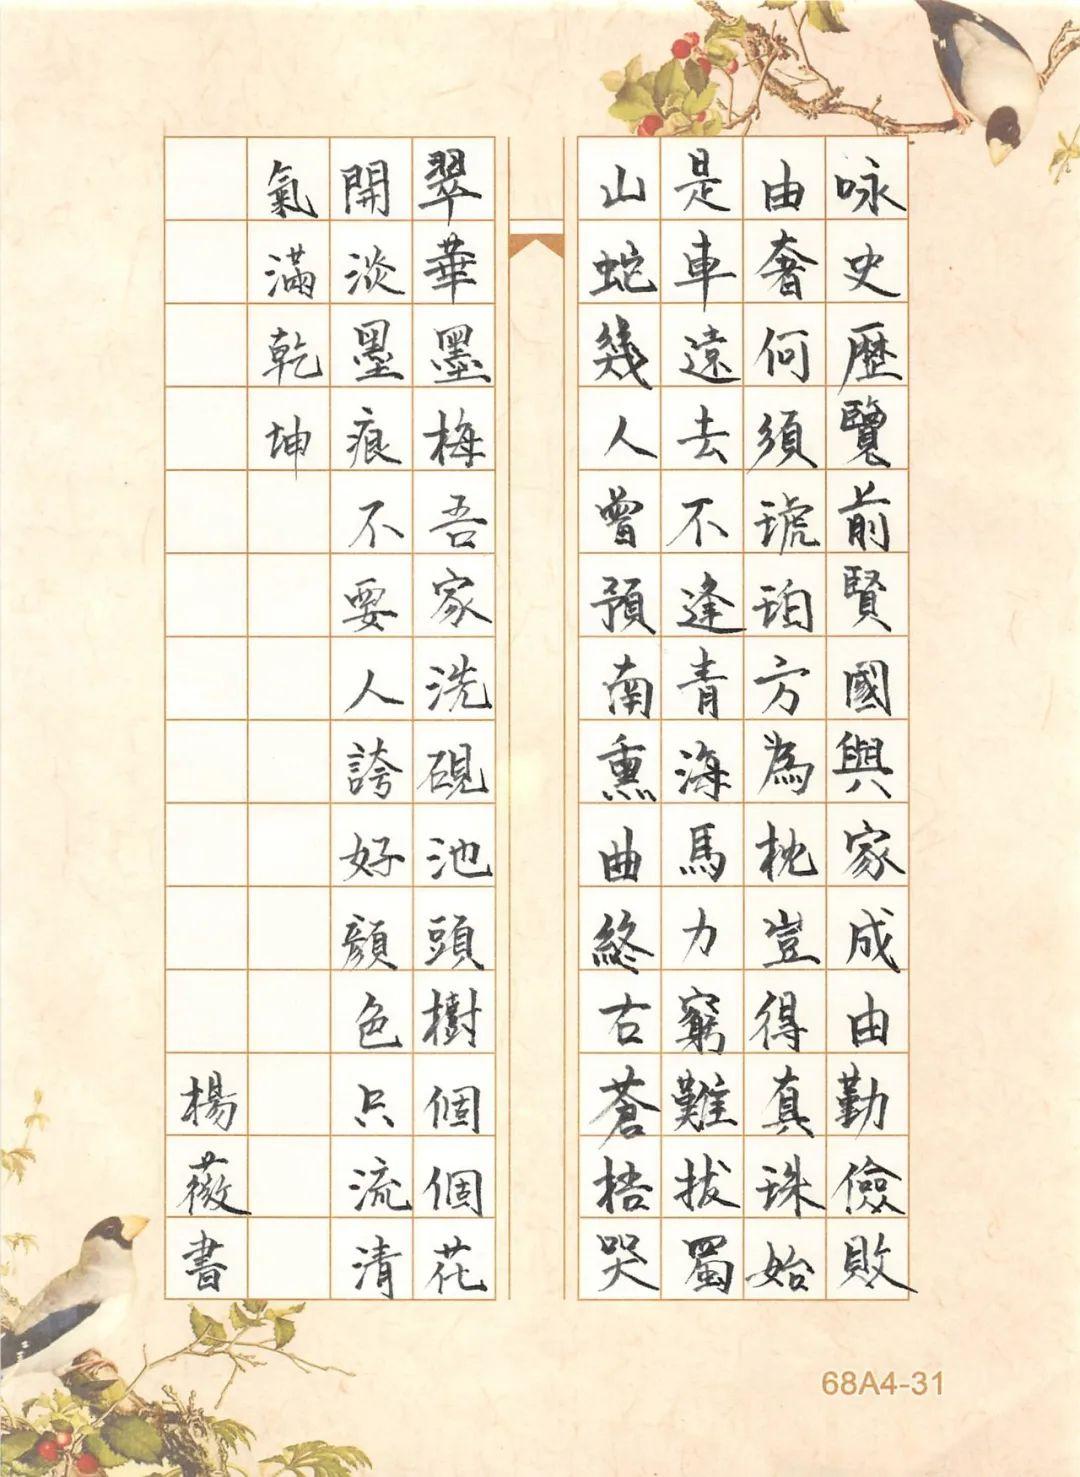 咏史歷覽前賢國與家成由勤儉敗
由奢何須琥珀方為枕豈得真珠始
是車遠去不逢青海馬力窮難拔蜀
山蛇幾人曾預南熏曲終古蒼梧哭
翠華墨梅吾家洗硯池頭樹個個花
開淡墨痕不要人誇好顏色只流清
氣滿乾坤
楊薇書
68A4-31